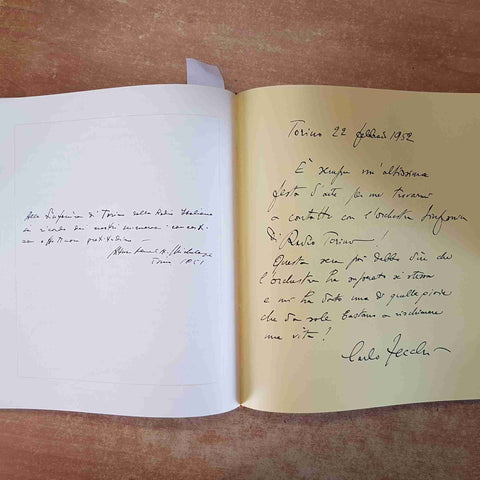 Alla Sinfonica di Torino della Radio Italiana
in ricordo dei nostri
Torino 1951
Torino 22 febbraio 1952
È sempre un'altissima
festa d'arte per me trovarmi
a contatto con l'Orchestra Sinfonica
di Radio Torino!
Questa sera poi debbo dire che
l'orchestra ha superato se stessa
e mi ha dato una di quelle gioie
che da sole bastano a rischiarare
una vita!
Carlo Zecchi